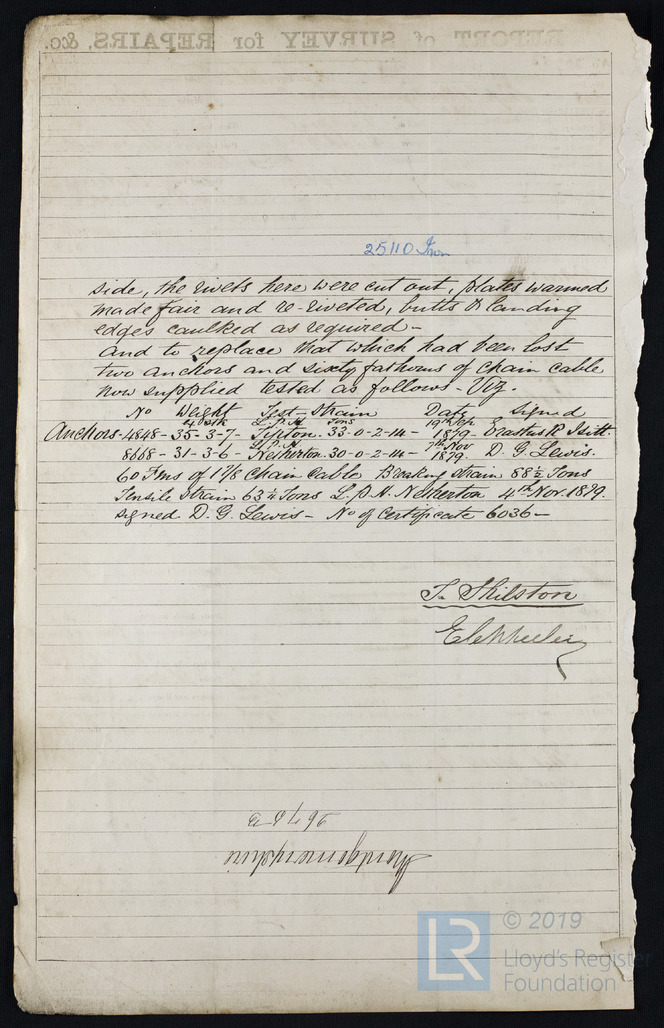 REPORT of SURVEY for REPAIRS, &c.
25110 Iron
side, the rivets here were cut out, plates warmed
made fair and re-riveted, butts & landing
edges caulked as required -
and to replace that which had been lost
two anchors and sixty fathoms of chain cable
now supplied tested as follows. Viz.
No Weight Test - Strain Date Signed
L.P.H. Tons 19th Sep
Anchors - 4848 - 35 - 3 - 7 - Tipton. 33 - 0 - 2 - 14 - 1879 - Erastus R
L.P.H 7th Nov
8668 - 31 - 3 - 6 - Netherton. 30 - 0 - 2 - 14 - 1879. D. G. Lewis.
60 Fms of 1 7/8 Chain Cable Breaking Strain 88 1/2 Tons
Tensile Strain 63 1/4 Tons L.P.H. Netherton 4th Nov. 1879.
signed. D. G. Lewis - No of Certificate 6036 -
T. Skilston
Montgomeryshire
© 2019
LR
Lloyd's Register
Foundation